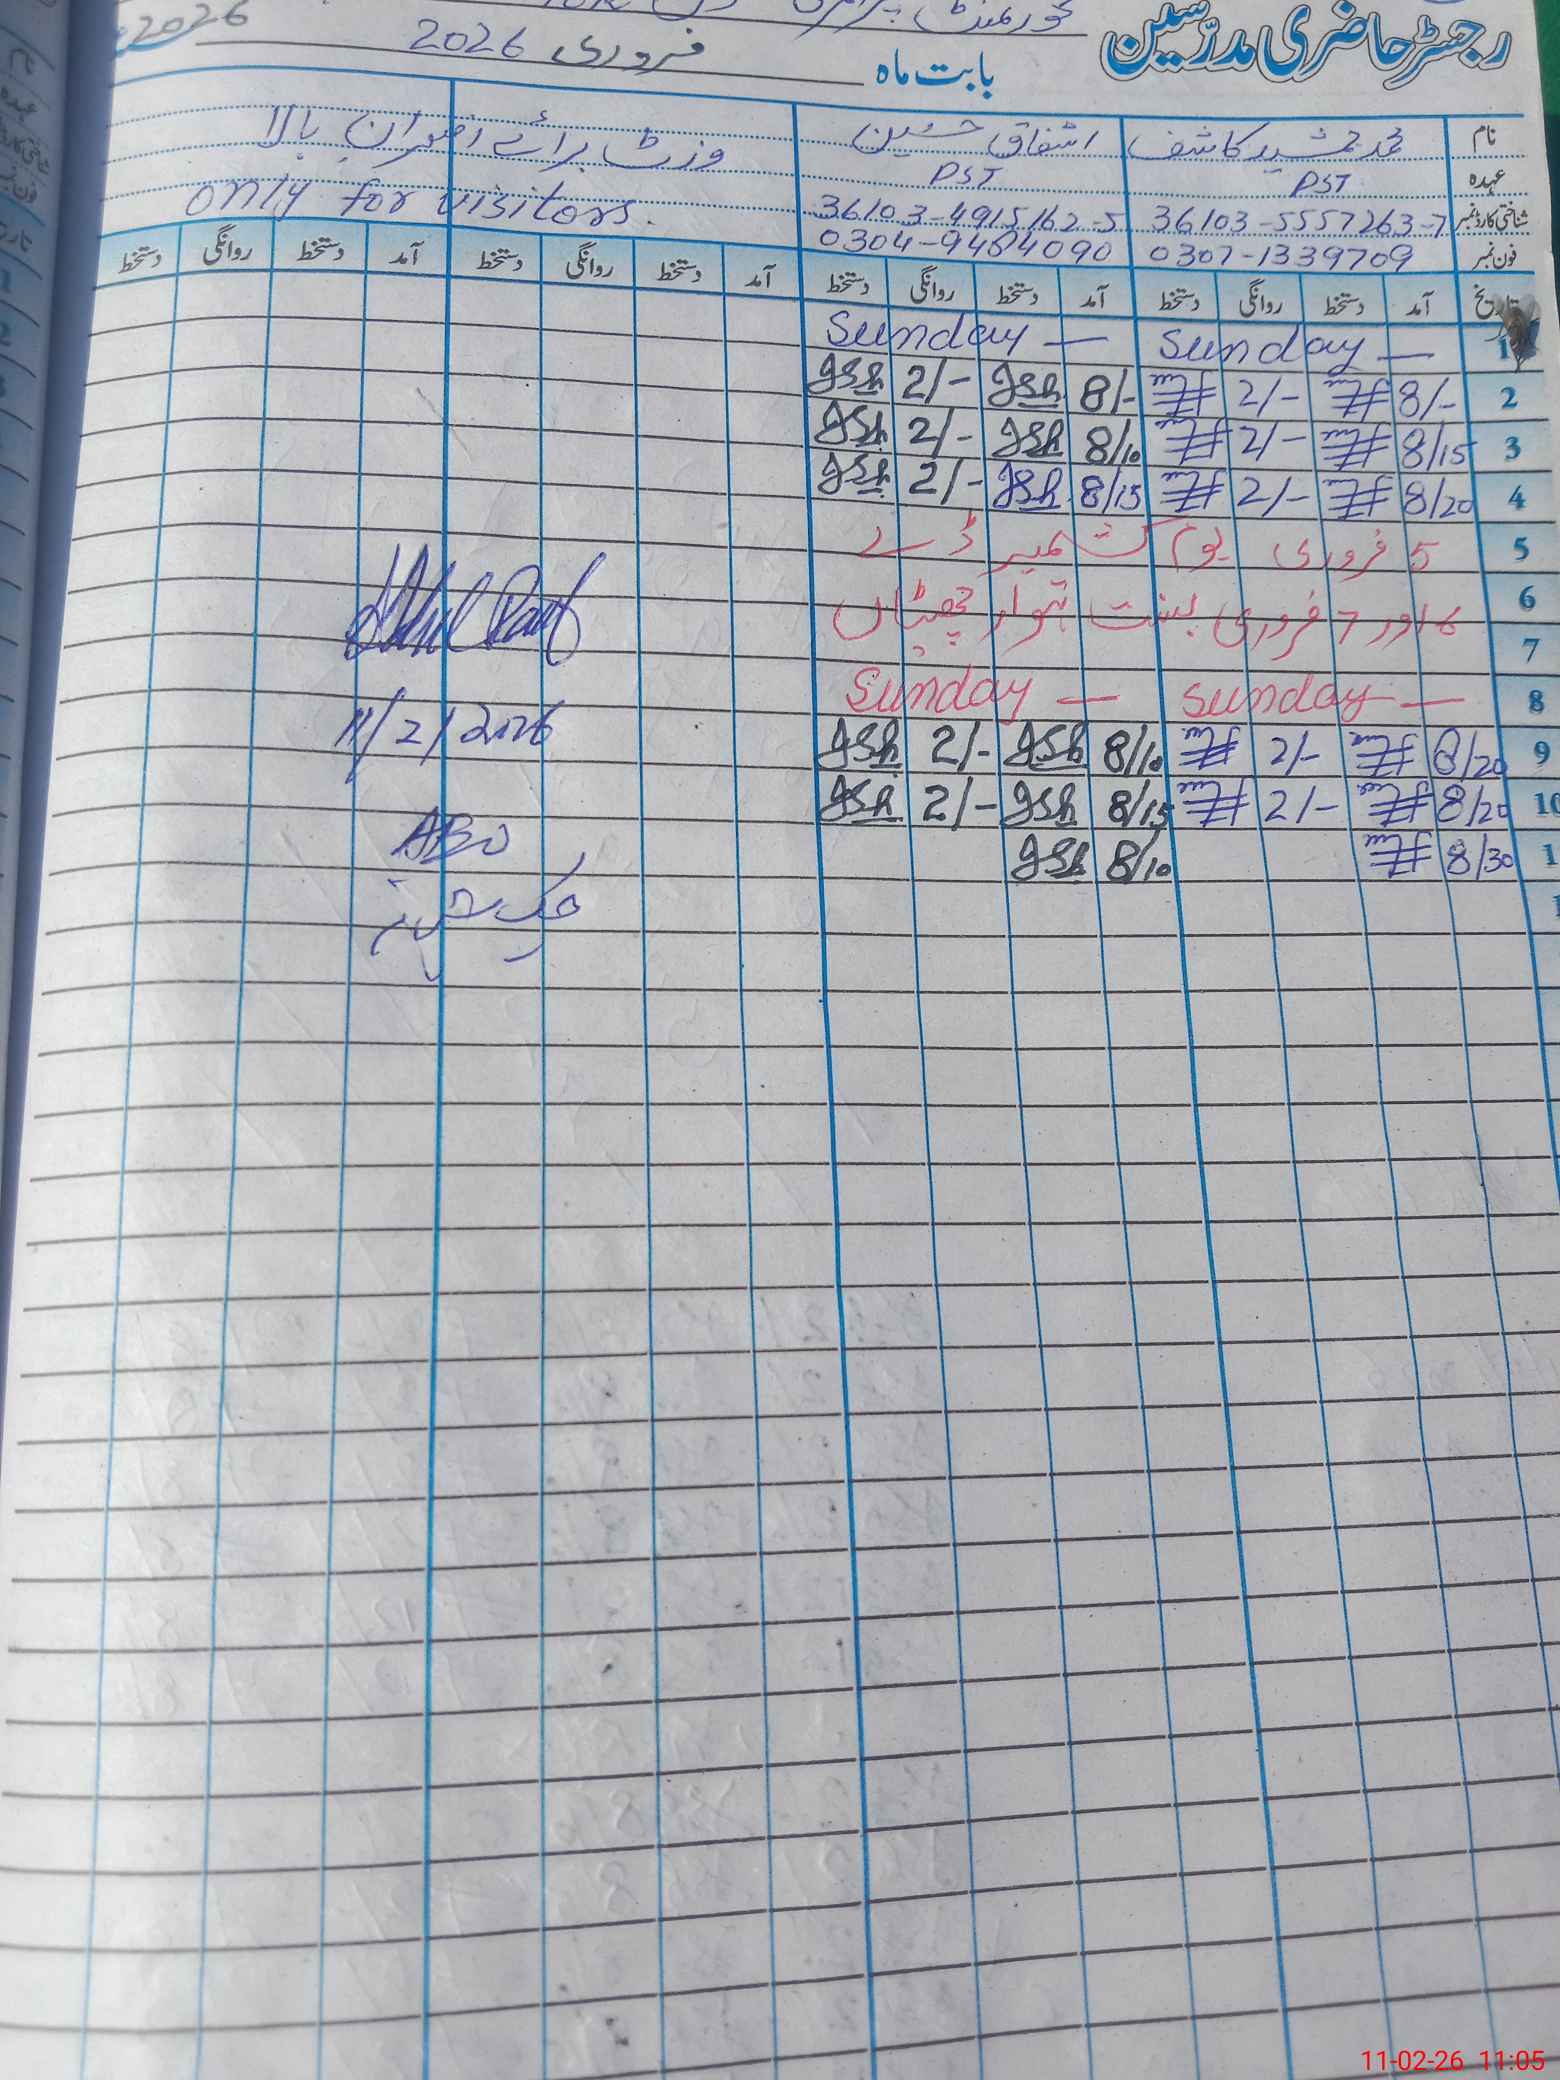 رجسٹر حاضری مدرّسین
گورنمنٹ پرائمری
بابت ماہ فروری 2026
2026
نام محمد جمشید کاشف اشفاق حسین وزٹ برائے افسران بالا
عہدہ PST PST only for visitors.
شناختی کارڈ نمبر 36103-5557263-7 36103-4915162-5
فون نمبر 0307-1339709 0304-9484090
تاریخ آمد دستخط روانگی دستخط آمد دستخط روانگی دستخط آمد دستخط روانگی دستخط آمد دستخط روانگی دستخط
1 Sunday — Sunday —
2 8/- 2/- 8/- JSh 2/- JSh
3 8/15 2/- 8/10 JSh 2/- JSh
4 8/20 2/- 8/15 JSh 2/- JSh
5 5 فروری یوم کشمیر ڈے
6 6 اور 7 فروری بسنت تہوار چھٹیاں
7
8 Sunday — Sunday —
9 8/20 2/- 8/10 JSh 2/- JSh
10 8/20 2/- 8/15 JSh 2/- JSh
1 8/30 8/10 JSh
11/2/2026
11-02-26 11:05